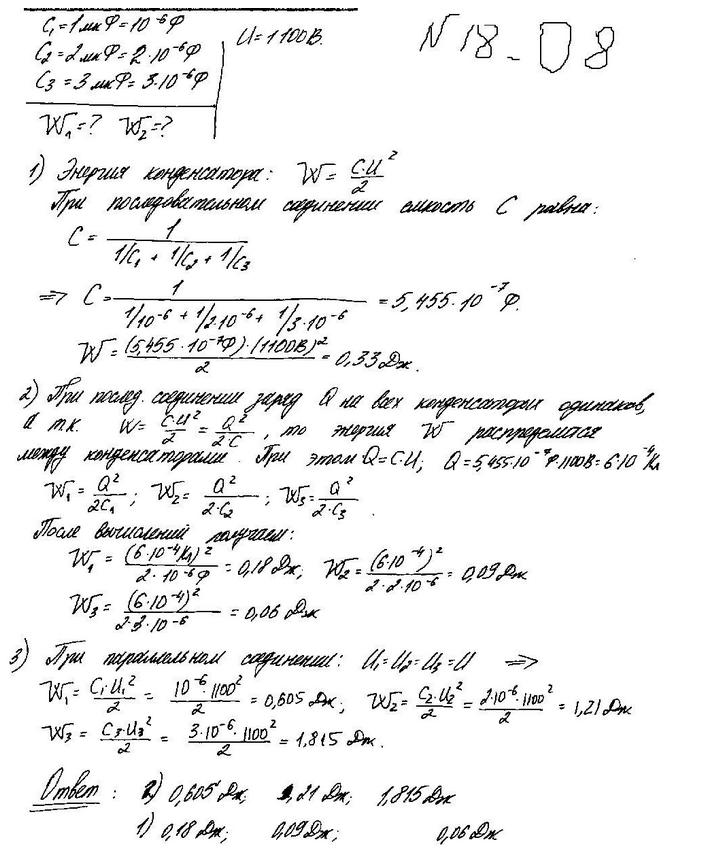 C₁ = 1 мкФ = 10⁻⁶ Ф
C₂ = 2 мкФ = 2·10⁻⁶ Ф
C₃ = 3 мкФ = 3·10⁻⁶ Ф
U = 1100 В.
N 18-08
W₁ = ? W₂ = ?
1) Энергия конденсатора: W = C·U²/2
При последовательном соединении емкость C равна:
C = 1/(1/C₁ + 1/C₂ + 1/C₃)
=> C = 1/(1/10⁻⁶ + 1/2·10⁻⁶ + 1/3·10⁻⁶) = 5,455·10⁻⁷ Ф.
W = (5,455·10⁻⁷Ф)·(1100В)²/2 = 0,33 Дж.
2) При послед. соединении заряд Q на всех конденсаторах одинаков,
а т.к. W = C·U²/2 = Q²/2·C, то энергия W распределится
между конденсаторами. При этом Q = C·U; Q = 5,455·10⁻⁷Ф·1100В = 6·10⁻⁴ Кл
W₁ = Q²/2C₁; W₂ = Q²/2·C₂; W₃ = Q²/2·C₃.
После вычислений получаем:
W₁ = (6·10⁻⁴Кл)²/2·10⁻⁶Ф = 0,18 Дж; W₂ = (6·10⁻⁴)²/2·2·10⁻⁶ = 0,09 Дж
W₃ = (6·10⁻⁴)²/2·3·10⁻⁶ = 0,06 Дж
3) При параллельном соединении: U₁ = U₂ = U₃ = U =>
W₁ = C₁·U₁²/2 = 10⁻⁶·1100²/2 = 0,605 Дж; W₂ = C₂·U₂²/2 = 2·10⁻⁶·1100²/2 = 1,21 Дж
W₃ = C₃·U₃²/2 = 3·10⁻⁶·1100²/2 = 1,815 Дж.
Ответ: 2) 0,605 Дж; 1,21 Дж; 1,815 Дж
1) 0,18 Дж; 0,09 Дж; 0,06 Дж